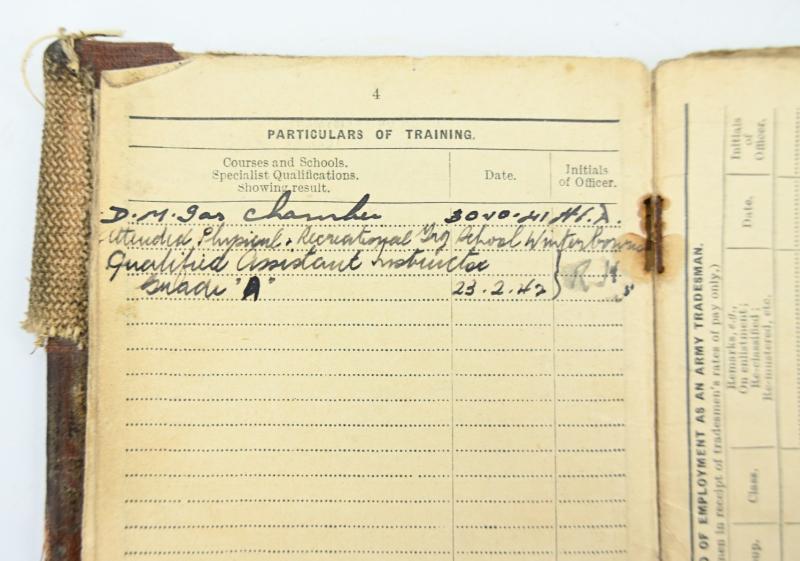 4
PARTICULARS OF TRAINING.
Courses and Schools.
Specialist Qualifications.
Showing result.
Date.
Initials
of Officer.
D.M. Gas Chamber 30-10-41
Attended Physical & Recreational Trg School Winterbourne
Qualified Assistant Instructor
Grade "A" 23.2.42
D OF EMPLOYMENT AS AN ARMY TRADESMAN.
men in receipt of tradesmen's rates of pay only.)
Initials
of
Officer.
Date.
Remarks, e.g.,
On enlistment;
Re-classified;
Re-mustered, etc.
Class.
oup.